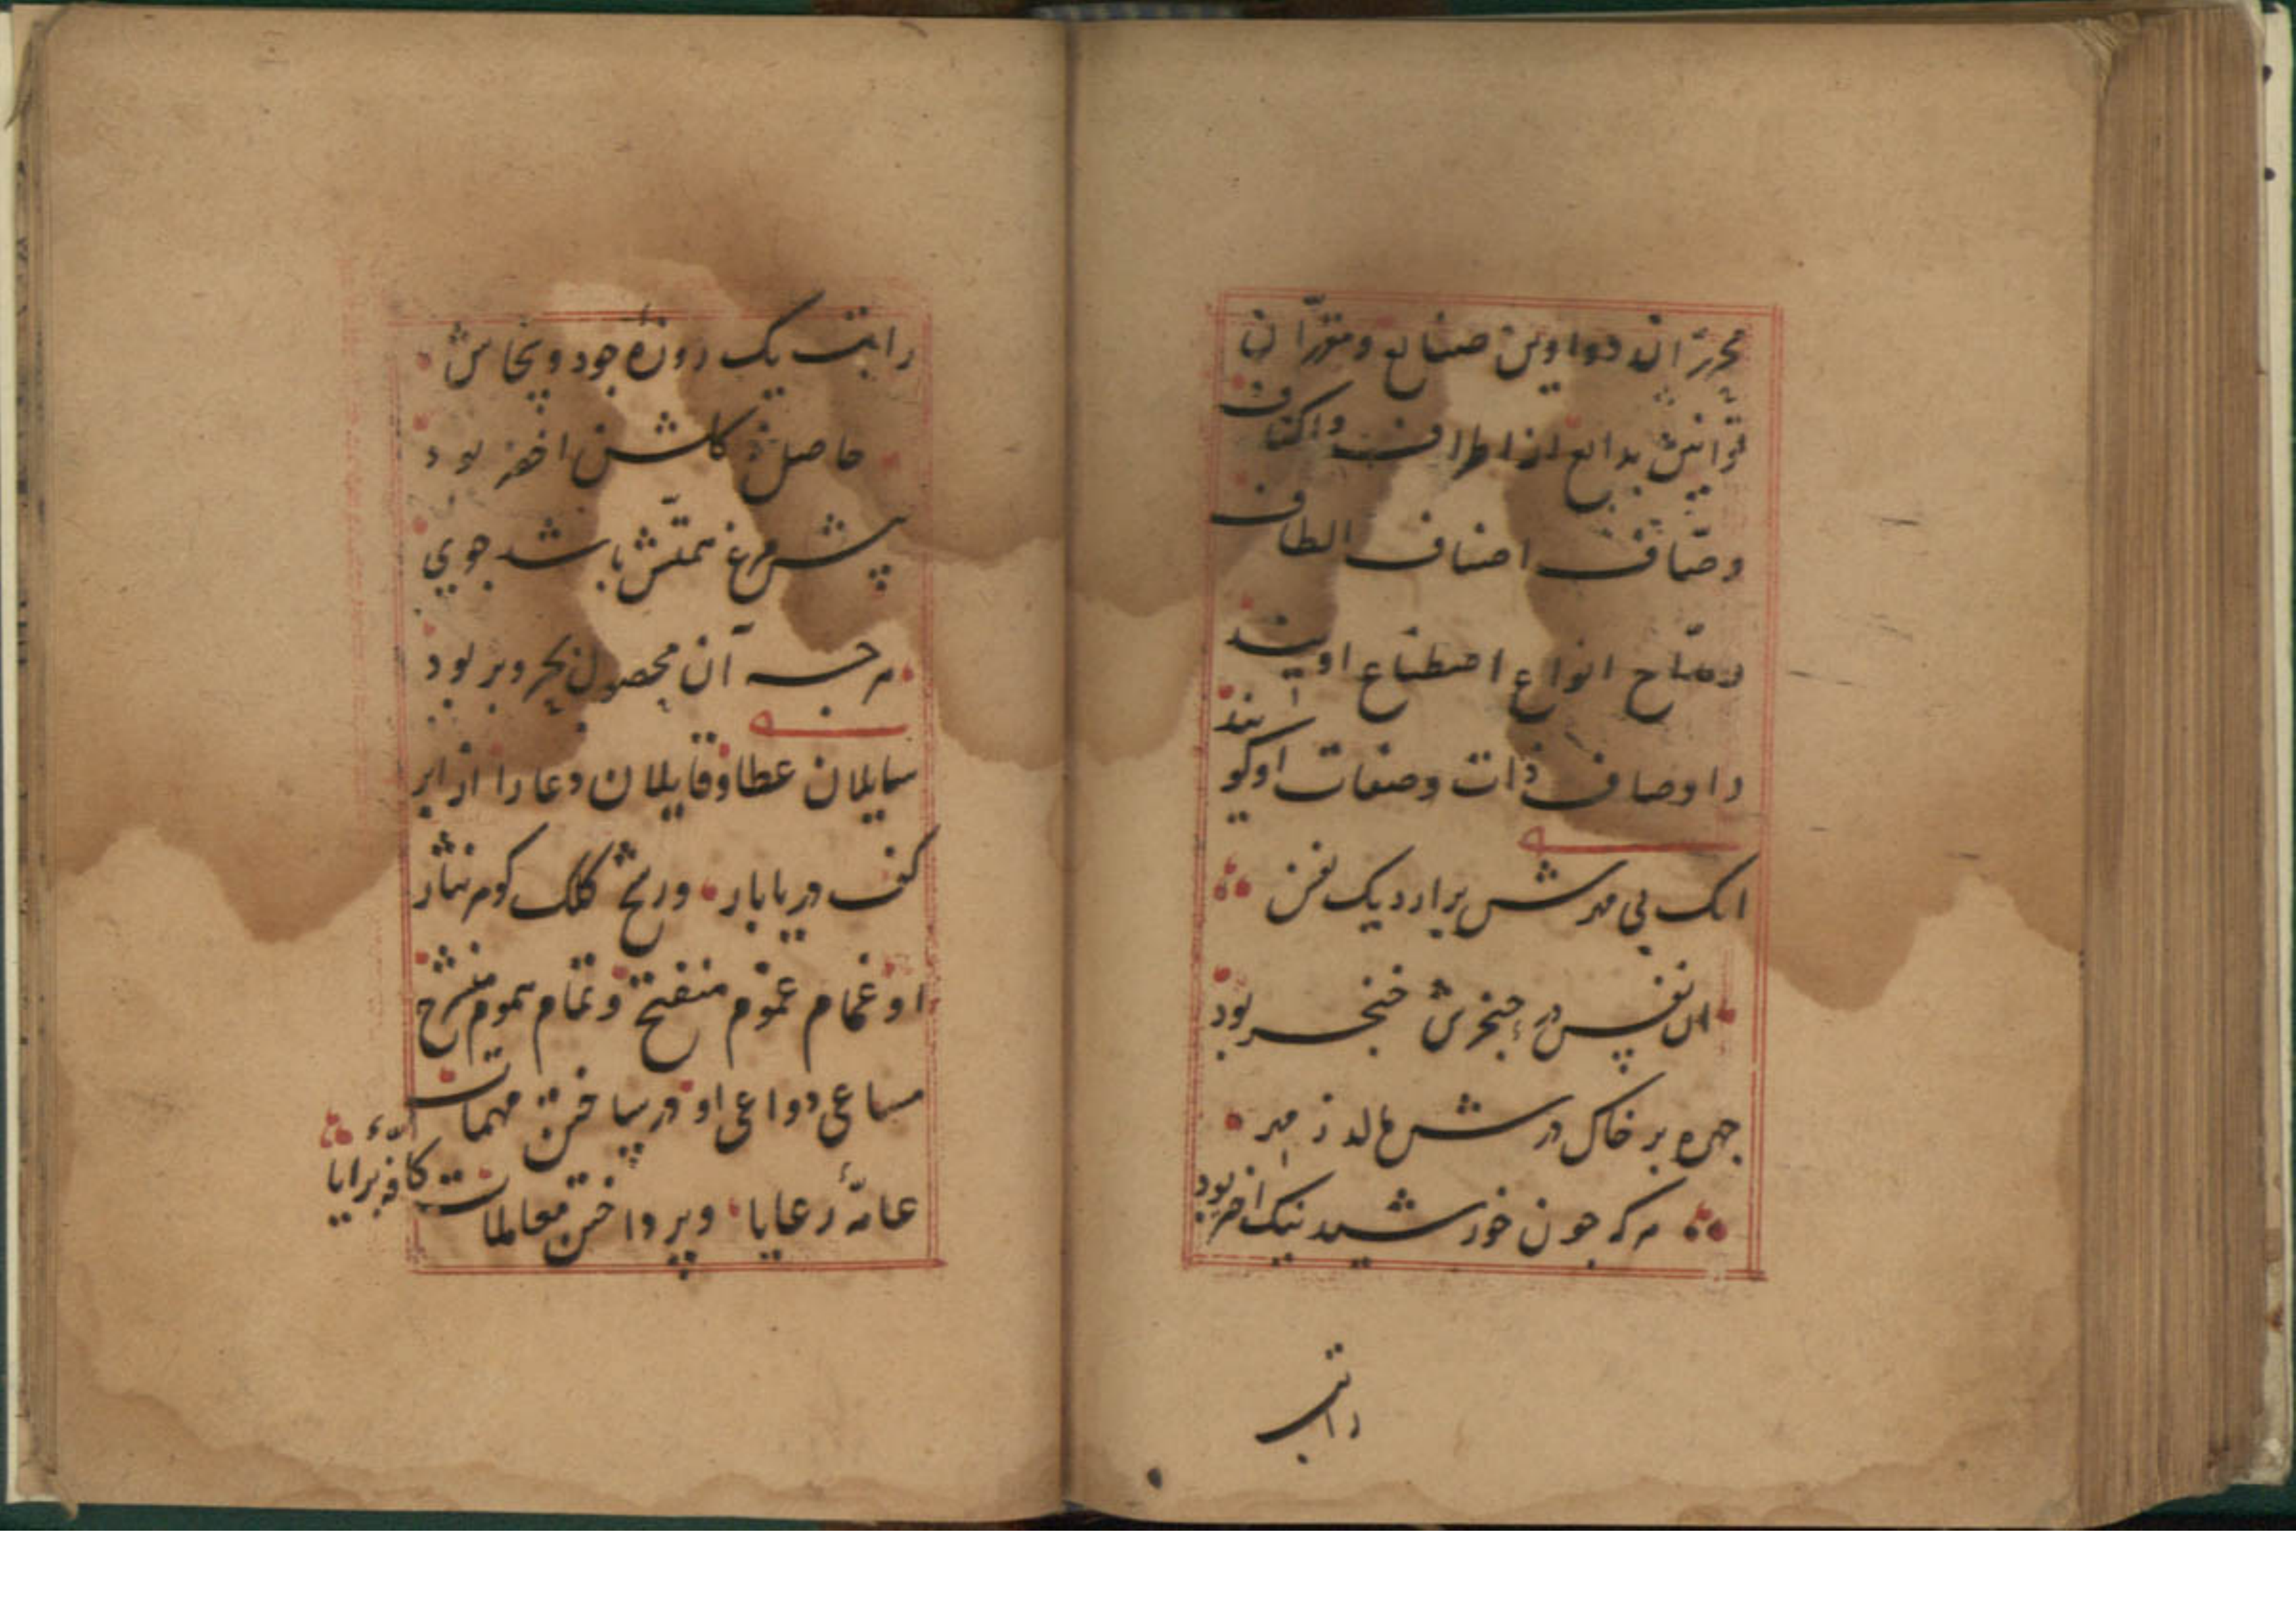 محرران دواوین صنایع ومقرران
قوانین بدایع از اطراف واکناف
وصاف اصناف الطاف
ومداح انواع اصطناع اویند
و اوصاف ذات وصفات او کویند
انک بی مهرش برارد یک نفس
ان نفس در حنجرش خنجر بود
چهره بر خاک درش مالد ز مهر
هرکه جون خورشید نیک اختر بود
راتب
راتب یک روزهٔ جود وسخاش
حاصل کاشن اخضر بود
پیش مرغ همتش باشد جوی
هرچه آن محصول بحر وبر بود
سایلان عطا وقایلان دعا را از ابر
کف دریابار ورشح کلک کوهر نثار
او غمام عموم منفتح وتمام هموم منشرح
مساعی دواعی او در ساختن مهمات
عامهٔ رعایا وپرداختن معاملات کافهٔ برایا